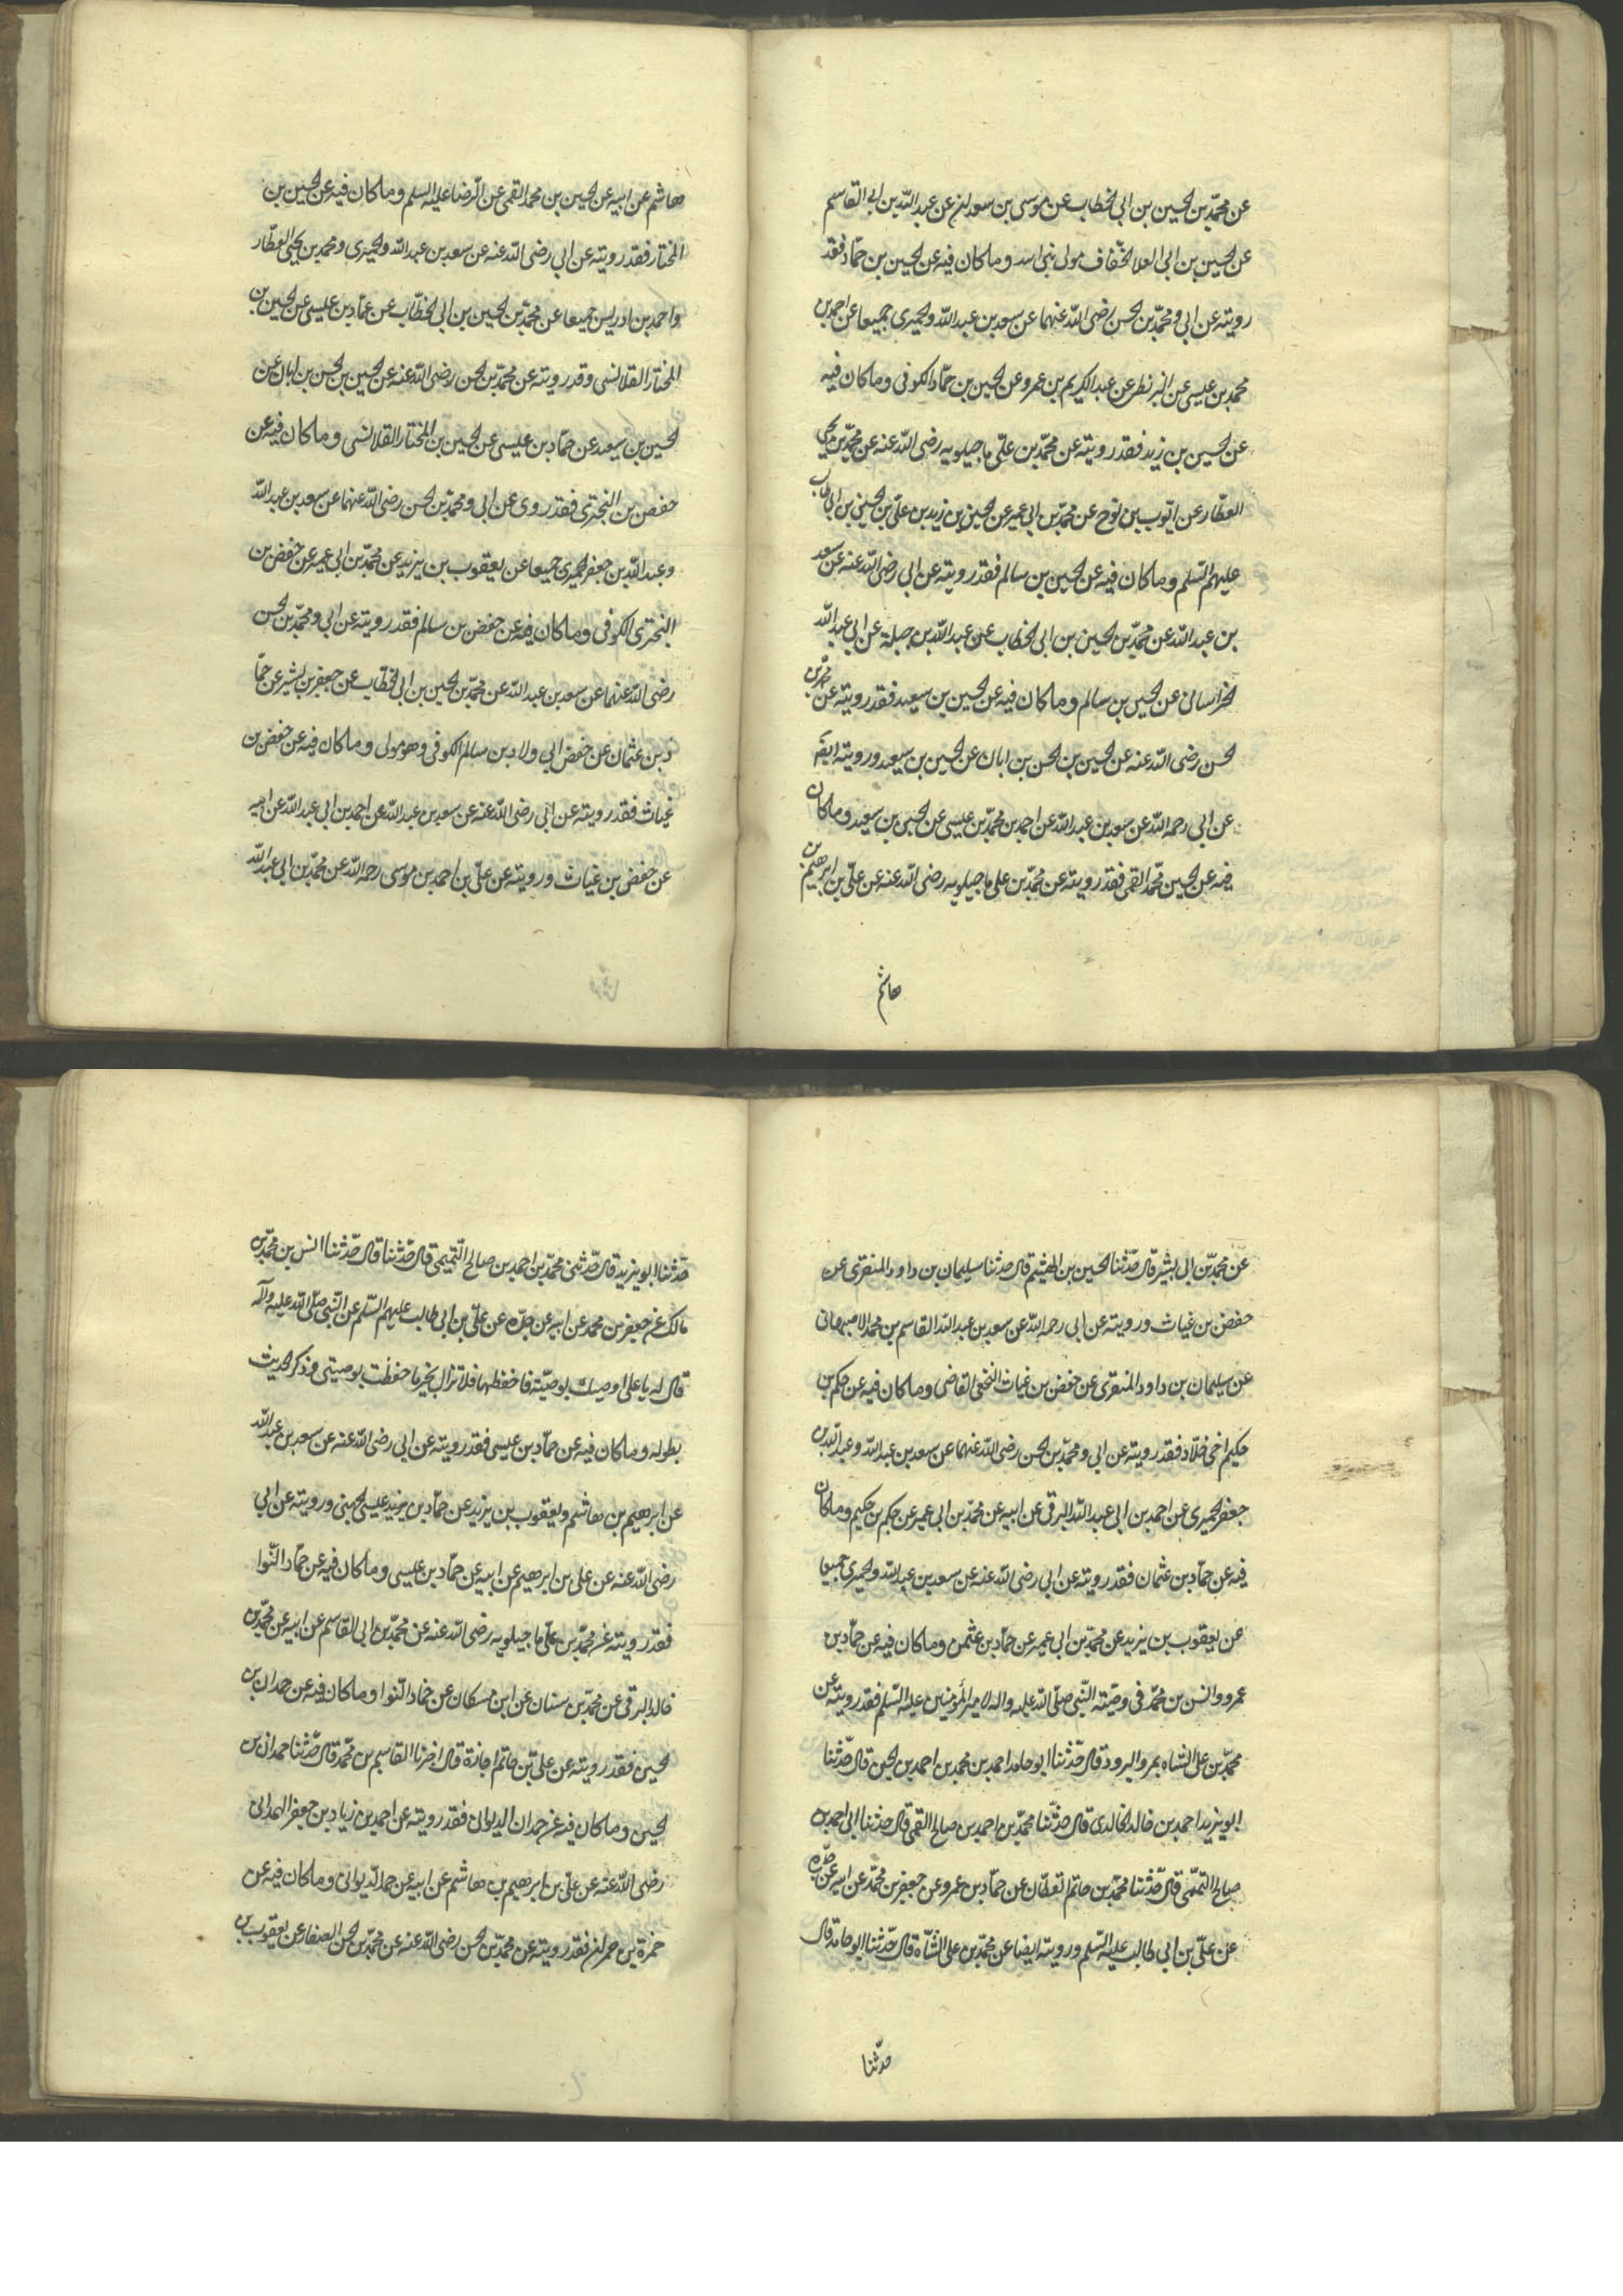 عن محمّد بن الحسین بن ابی الخطاب عن موسی بن سعدان عن عبد اللّه بن ابی القاسم
عن الحسین بن ابی العلا الخفّاف مولی بنی اسد وماکان فیه عن الحسین بن حمّاد فقد
رویته عن ابی ومحمّد بن الحسن رضی اللّه عنهما عن سعد بن عبد اللّه والحمیری جمیعا عن احمد بن
محمد بن عیسی عن البزنطی عن عبد الکریم بن عمرو عن الحسین بن حمّاد الکوفی وماکان فیه
عن الحسین بن زید فقد رویته عن محمّد بن علی ماجیلویه رضی اللّه عنه عن محمّد بن یحیی
العطّار عن ایّوب بن نوح عن محمّد بن ابی عمیر عن الحسین بن زید بن علی بن الحسین بن ابی طالب
علیهم السّلم وماکان فیه عن الحسین بن سالم فقد رویته عن ابی رضی اللّه عنه عن سعد
بن عبد اللّه عن محمّد بن الحسین بن ابی الخطاب عن عبد اللّه بن جبلة عن ابی عبد اللّه
الخراسانی عن الحسین بن سالم وماکان فیه عن الحسین بن سعید فقد رویته عن محمّد بن
الحسن رضی اللّه عنه عن الحسین بن الحسن بن ابان عن الحسین بن سعید ورویته ایضً
عن ابی رحمه اللّه عن سعد بن عبد اللّه عن احمد بن محمّد بن عیسی عن الحسین بن سعید وماکان
فیه عن الحسین محمّد القمی فقد رویته عن محمّد بن علی ماجیلویه رضی اللّه عنه عن علی بن ابرهیم بن
هاشم
هاشم عن ابیه عن الحسین بن محمد القمی عن الرّضا علیه السلم وماکان فیه عن الحسین بن
المختار فقد رویته عن ابی رضی اللّه عنه عن سعد بن عبد اللّه والحمیری ومحمد بن یحیی العطّار
واحمد بن ادریس جمیعا عن محمّد بن الحسین بن ابی الخطّاب عن حمّاد بن عیسی عن الحسین بن
المختار القلانسی وقد رویته عن محمّد بن الحسن رضی اللّه عنه عن الحسین بن الحسن بن ابان عن
الحسین بن سعید عن حمّاد بن عیسی عن الحسین بن المختار القلانسی وماکان فیه عن
حفص بن البختری فقد روی عن ابی ومحمّد بن الحسن رضی اللّه عنهما عن سعد بن عبد اللّه
وعبد اللّه بن جعفر الحمیری جمیعا عن یعقوب بن یزید عن محمّد بن ابی عمیر عن حفص بن
البختری الکوفی وماکان فیه عن حفص بن سالم فقد رویته عن ابی ومحمّد بن الحسن
رضی اللّه عنهما عن سعد بن عبد اللّه عن محمّد بن الحسین بن ابی الخطّاب عن جعفر بن بشیر عن حمّا
د بن عثمان عن حفص ابی ولاد بن سالم الکوفی وهو مولی وماکان فیه عن حفص بن
غیاث فقد رویته عن ابی رضی اللّه عنه عن سعد بن عبد اللّه عن احمد بن ابی عبد اللّه عن ابیه
عن حفص بن غیاث ورویته عن علی بن احمد بن موسی رحمه اللّه عن محمّد بن ابی عبد اللّه
عن محمّد بن ابی بشیر قال حدّثنا الحسین بن الهیثم قال حدثنا سلیمان بن داود المنقری عن
حفص بن غیاث ورویته عن ابی رحمه اللّه عن سعد بن عبد اللّه القاسم بن محمد الاصبهانی
عن سلیمان بن داود المنقری عن حفص بن غیاث النخعی القاضی وماکان فیه عن حکم بن
حکیم اخی خلّاد فقد رویته عن ابی ومحمّد بن الحسن رضی اللّه عنهما عن سعد بن عبد اللّه وعبد اللّه بن
جعفر الحمیری عن احمد بن ابی عبد اللّه البرقی عن ابیه عن محمّد بن ابی عمیر عن حکم بن حکیم وماکان
فیه عن حمّاد بن عثمان فقد رویته عن ابی رضی اللّه عنه عن سعد بن عبد اللّه والحمیری جمیعا
عن یعقوب بن یزید عن محمّد بن ابی عمیر عن حمّاد بن عثمن وماکان فیه عن حمّاد بن
عمرو وانس بن محمّد فی وصّیته النّبی صلّی اللّه علیه واله لامیر المؤمنین علیه السّلم فقد رویته عن
محمّد بن علی الشاه بمرو الرود قال حدّثنا ابو حامد احمد بن محمد بن احمد بن الحسین قال حدّثنا
ابو یزید احمد بن خالد الخالدی قال حدّثنا محمّد بن احمد بن صالح القمی قال حدثنا ابی احمد بن
صالح التمیمی قال حدّثنا محمّد بن حاتم القطّان عن حمّاد بن عمرو عن جعفر بن محمّد عن ابیه عن جدّه
عن علی بن ابی طالب علیه السّلم ورویته ایضا عن محمّد بن علی الشّاه قال حدّثنا ابو حامد قال
حدّثنا
حدّثنا ابو یزید قال حدّثنی محمّد بن احمد بن صالح التّمیمی قال حدّثنا قال حدّثنا انس بن محمّد بن
مالک عن جعفر بن محمد عن ابیه عن جدّه عن علی بن ابی طالب علیهم السّلم عن النّبی صلّی اللّه علیه وآله
قال له یا علی اوصیک بوصیّته فاحفظها فلا تزال بخیر ما حفظت بوصیتی وذکر الحدیث
بطوله وماکان فیه عن حمّاد بن عیسی فقد رویته عن ابی رضی اللّه عنه عن سعد بن عبد اللّه
عن ابرهیم بن هاشم ویعقوب بن یزید عن حمّاد بن یزید عیسی الجهنی ورویته عن ابی
رضی اللّه عنه عن علی بن ابرهیم عن ابیه عن حمّاد بن عیسی وماکان فیه عن حمّاد النّوا
فقد رویته عن محمّد بن علی ماجیلویه رضی اللّه عنه عن محمّد بن ابی القاسم عن ابیه عن محمّد بن
خالد البرقی عن محمّد بن سنان عن ابن مسکان عن حماد النّوا وماکان فیه عن حمدان بن
الحسین فقد رویته عن علی بن حاتم اجازة قال اخبرنا القاسم بن محمّد قال حدّثنا حمدان بن
الحسین وماکان فیه عن حمدان الدیوانی فقد رویته عن احمد بن زیاد بن جعفر الهمدانی
رضی اللّه عنه عن علی بن ابرهیم بن هاشم عن ابیه عن حمد الدّیوانی وماکان فیه عن
حمزة بن حمران فقد رویته عن محمّد بن الحسن رضی اللّه عنه عن محمّد بن الحسن الصفار عن یعقوب بن